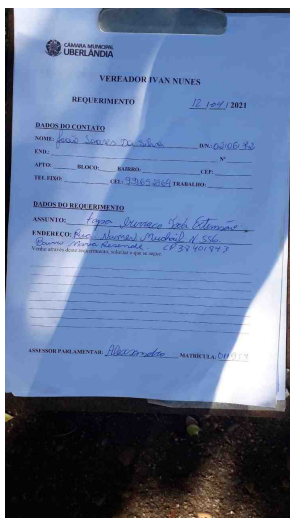 CÂMARA MUNICIPAL
UBERLÂNDIA
VEREADOR IVAN NUNES
REQUERIMENTO 12/04/2021
DADOS DO CONTATO
NOME: José Soares Da Silva D/N: 02/06/92
END.: Nº
APTO: BLOCO: BAIRRO: CEP:
TEL FIXO: CEL: TRABALHO:
DADOS DO REQUERIMENTO
ASSUNTO: tapa buraco Toda Extensão
ENDEREÇO: Rua N 556
Bairro Maria Rezende CEP 38401843
Venho através deste requerimento, solicitar o que se segue:
ASSESSOR PARLAMENTAR: Alexandre MATRÍCULA: